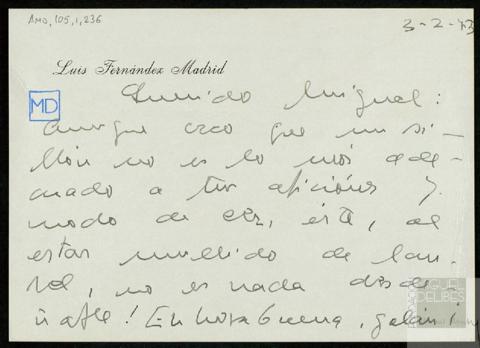 AMD,105,1,236
3-2-73
Luis Fernández Madrid
MD
Querido Miguel:
Aunque creo que un si-
llón no es lo más ade-
cuado a tus aficiones y
modo de ser, éste, al
estar mullido de lau-
rel, no es nada desde-
ñable! Enhorabuena, galán!
MIGUEL
DELIBES